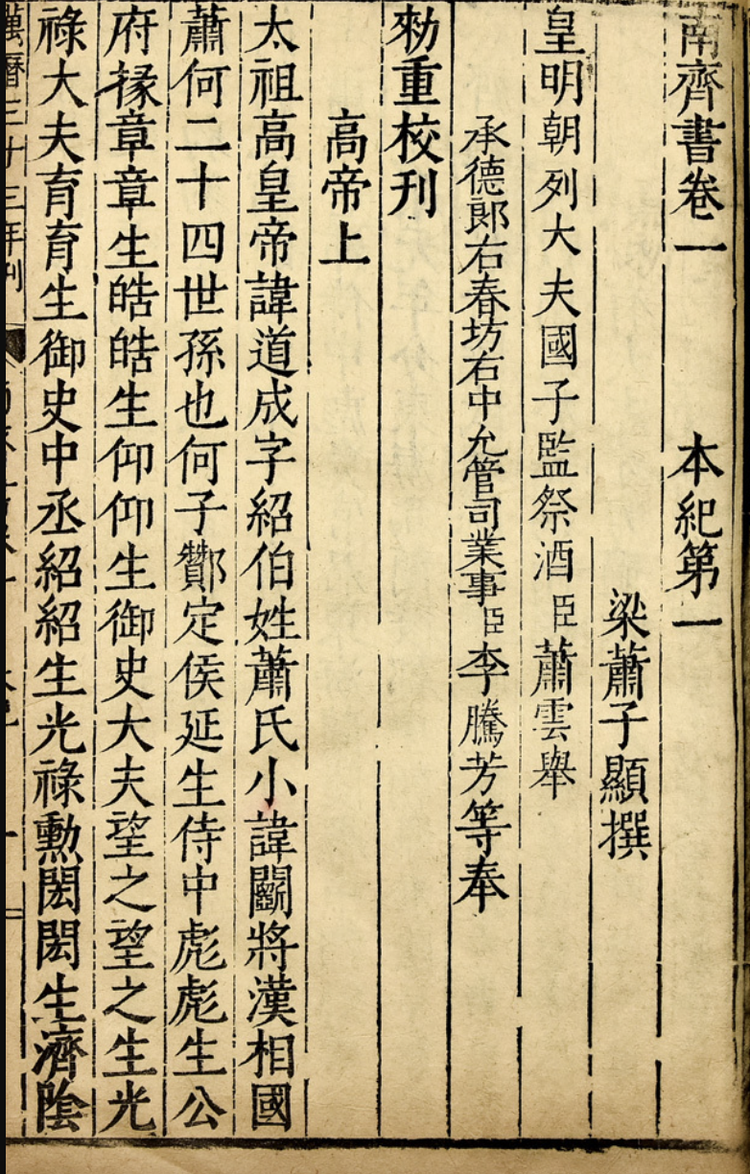 南齊書卷一 本紀第一
梁蕭子顯撰
皇明朝列大夫國子監祭酒臣蕭雲舉
承德郎右春坊右中允管司業事臣李騰芳等奉
勑重校刊
高帝上
太祖高皇帝諱道成字紹伯姓蕭氏小諱鬭將漢相國
蕭何二十四世孫也何子酇定侯延生侍中彪彪生公
府掾章章生皓皓生仰仰生御史大夫望之望之生光
祿大夫育育生御史中丞紹紹生光祿勳閎閎生濟陰
萬曆三十三年刊